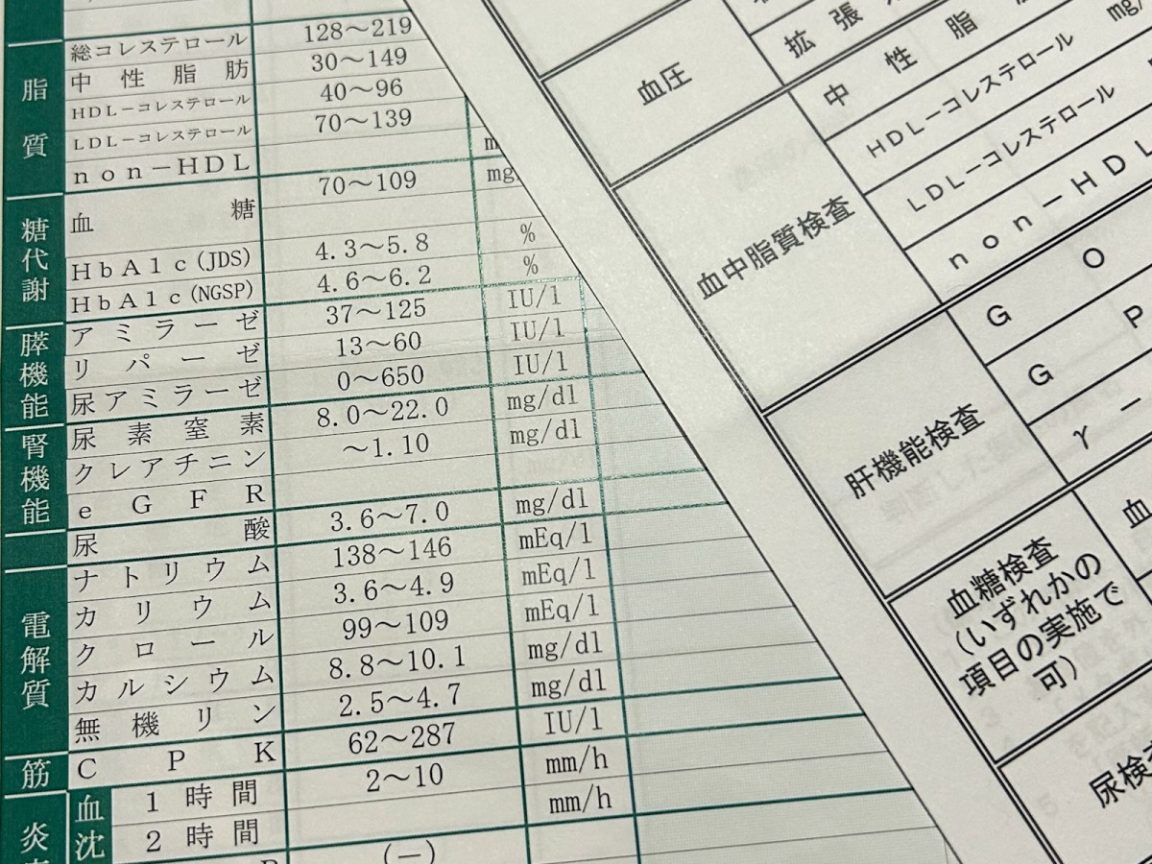 脂質
総コレステロール 128～219
中性脂肪 30～149
HDL－コレステロール 40～96
LDL－コレステロール 70～139
non－HDL
糖代謝
血糖 70～109 mg
HbA1c(JDS) 4.3～5.8 %
HbA1c(NGSP) 4.6～6.2 %
膵機能
アミラーゼ 37～125 IU/l
リパーゼ 13～60 IU/l
尿アミラーゼ 0～650 IU/l
腎機能
尿素窒素 8.0～22.0 mg/dl
クレアチニン ～1.10 mg/dl
eGFR
尿酸 3.6～7.0 mg/dl
電解質
ナトリウム 138～146 mEq/l
カリウム 3.6～4.9 mEq/l
クロール 99～109 mEq/l
カルシウム 8.8～10.1 mg/dl
無機リン 2.5～4.7 mg/dl
筋
CPK 62～287 IU/l
炎
血沈
1時間 2～10 mm/h
2時間 mm/h
(－)
血圧
拡張
血中脂質検査
中性脂
HDL－コレステロール mg/
LDL－コレステロール
non－HDL
肝機能検査
GO
GP
γ－
血糖検査
(いずれかの
項目の実施で
可)
血
尿検査